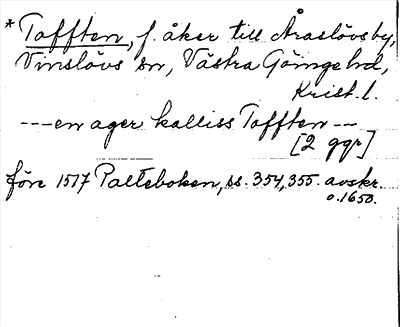 * Tofften, f. åker till Åraslövsby,
Vinslövs sn, Västra Göinge hd,
Krist. l.
---en ager kalliss Tofften --
[2 ggr]
före 1517 Palteboken, ss. 354, 355. avskr.
o. 1650.